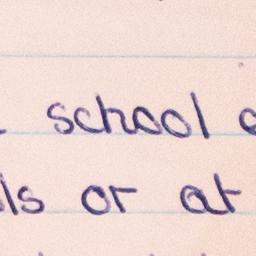 school
ls or at